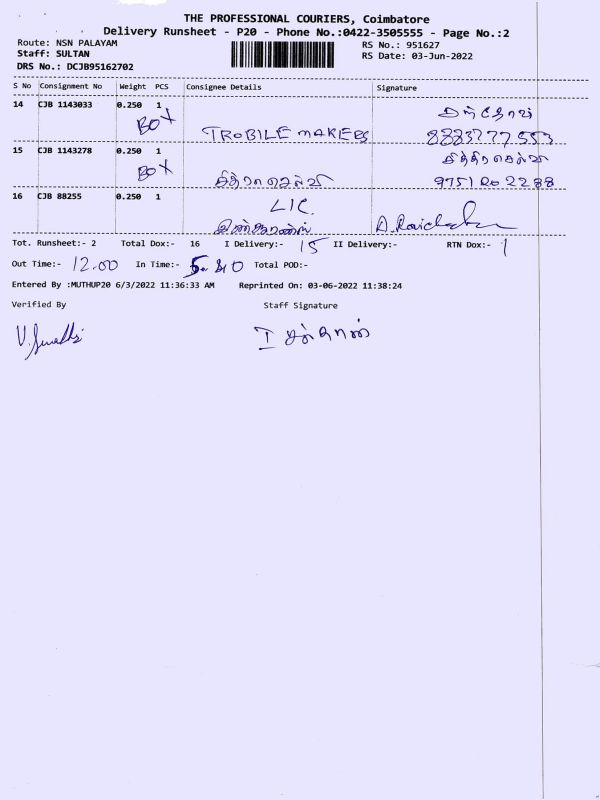 THE PROFESSIONAL COURIERS, Coimbatore
Delivery Runsheet - P20 - Phone No.:0422-3505555 - Page No.:2
Route: NSN PALAYAM
Staff: SULTAN
DRS No.: DCJB95162702
RS No.: 951627
RS Date: 03-Jun-2022
S No Consignment No Weight PCS Consignee Details Signature
14 CJB 1143033 0.250 1
BOX TROBILE MAKERS 8883777553
15 CJB 1143278 0.250 1 சித்திரசெல்வி
BOX சித்ரா செல்வி 9751202288
16 CJB 88255 0.250 1 LIC.
Tot. Runsheet:- 2 Total Dox:- 16 I Delivery:- 15 II Delivery:- RTN Dox:- 1
Out Time:- 12.00 In Time:- Total POD:-
Entered By :MUTHUP20 6/3/2022 11:36:33 AM Reprinted On: 03-06-2022 11:38:24
Verified By Staff Signature